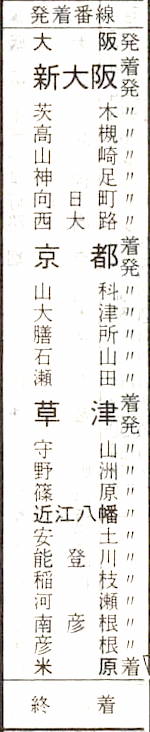 発着番線
大阪発
新大阪着発
茨木〃
高槻〃
山崎〃
神足〃
向日町〃
西大路〃
京都着発
山科〃
大津〃
膳所〃
石山〃
瀬田〃
草津着発
守山〃
野洲〃
篠原〃
近江八幡〃
安土〃
能登川〃
稲枝〃
河瀬〃
南彦根〃
彦根〃
米原着
終着